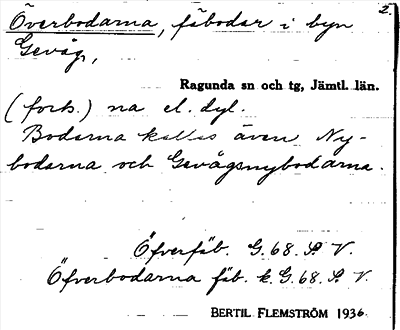 2.
Överbodarna, fäbodar i byn
Gevåg,
Ragunda sn och tg, Jämtl. län.
(forts.) na el. dyl.
Bodarna kallas även Ny-
bodarna och Gevågsnybodarna.
Öfverfäb. G. 68. S. V.
Öfverbodarna fäb. k. G. 68. S. V.
BERTIL FLEMSTRÖM 1936.